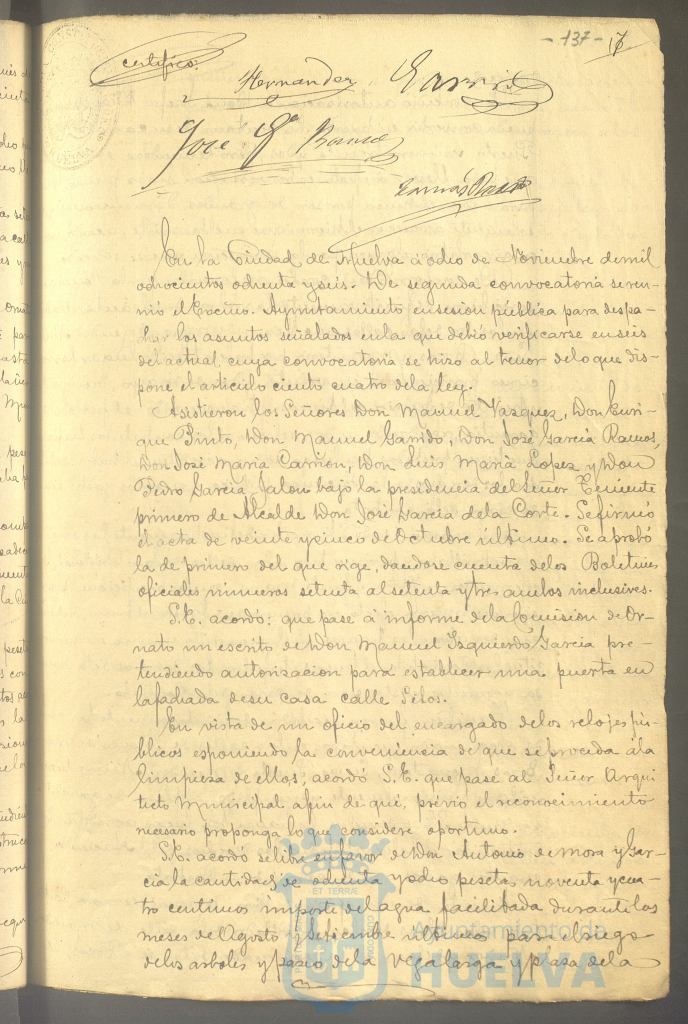 - 137 - 17
certifico:
Hernandez Garrido
Jose Ga Ramos
En la Ciudad de Huelva á ocho de Noviembre de mil
ochocientos ochenta y seis. De segunda convocatoria se reu-
nió el Excmo. Ayuntamiento en sesion pública para despa-
char los asuntos señalados en la que debió verificarse en seis
del actual, cuya convocatoria se hizo al tenor de lo que dis-
pone el articulo ciento cuatro de la ley.
Asistieron los Señores Don Manuel Vazquez, Don Enri-
que Pinto, Don Manuel Garrido, Don José Garcia Ramos,
Don José Maria Carrion, Don Luis Maria Lopez y Don
Pedro Garcia Jalon bajo la presidencia del Señor Teniente
primero de Alcalde Don José Garcia de la Corte. Se firmó
el acta de veinte y cinco de Octubre último. Se aprobó
la de primero del que rige, dandose cuenta de los Boletines
oficiales números setenta al setenta y tres ambos inclusives.
S.E. acordó: que pase á informe de la Comision de Or-
nato un escrito de Don Manuel Izquierdo Garcia pre-
tendiendo autorizacion para establecer una puerta en
la fachada de su casa calle Silos.
En vista de un oficio del encargado de los relojes pú-
blicos esponiendo la conveniencia de que se proceda á la
limpieza de ellos, acordó S.E. que pase al Señor Arqui
tecto Municipal a fin de que, prévio el reconocimiento
necesario proponga lo que considere oportuno.
S.E. acordó se libre en favor de Don Antonio de Mora y Gar-
cia la cantidad de ochenta y ocho pesetas noventa y cua-
tro centimos importe del agua facilitada durante los
meses de Agosto y Setiembre últimos para el riego
de los arboles y paseo de la Vega larga y plaza de la
ET TERRÆ
Ayuntamiento de
HUELVA